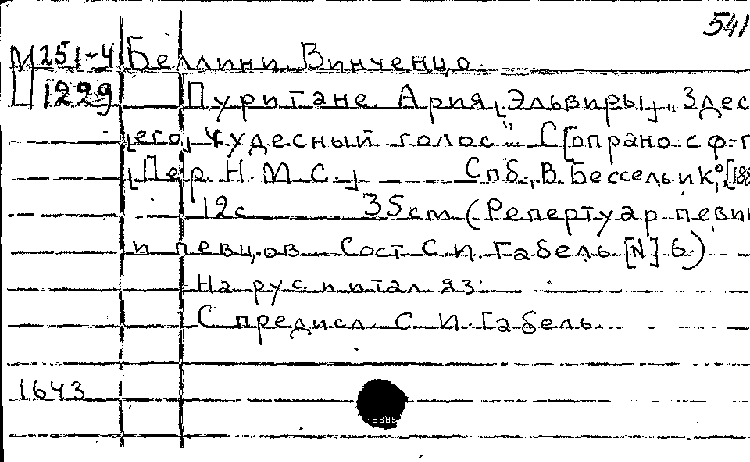 541
М 251-4 Беллини Винченцо.
П 1229 Пуритане. Ария [Эльвиры] „Здес
[его] чудесный голос". С[опрано с ф-п
[Пер. Н. М. С.] Спб., В. Бессель и К°, [188
12 с. 35 см. (Репертуар певи
и певцов. Сост. С. И. Габель [N] 6)
На рус. и итал. яз.
С предисл. С. И. Габель.
1643